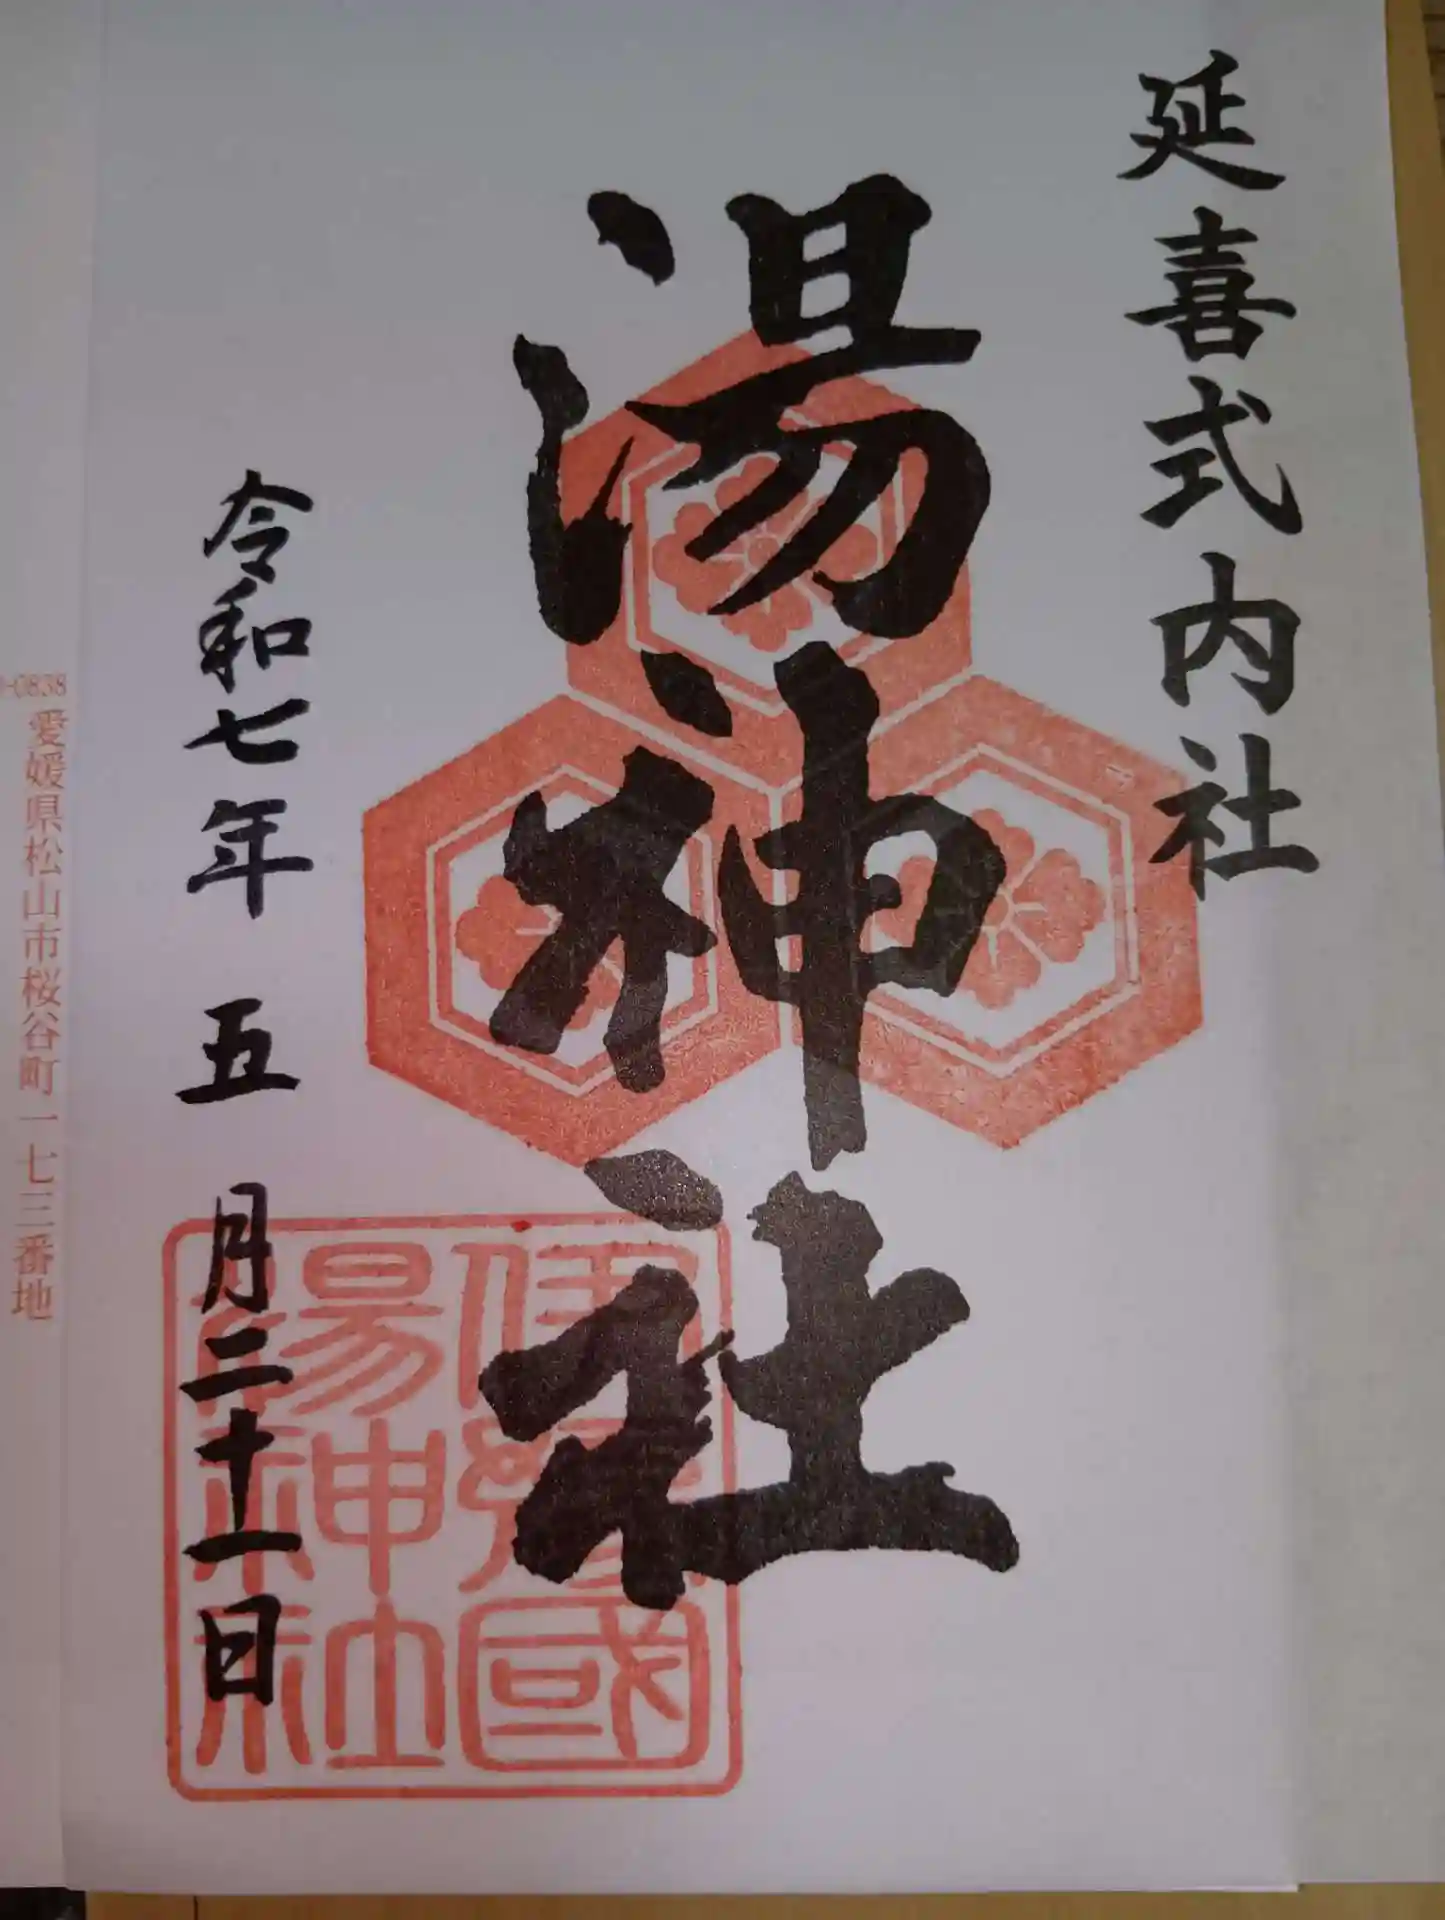 延喜式内社
湯神社
令和七年 五 月二十一日
伊豫國
湯神社
-0838
愛媛県松山市桜谷町一七三番地